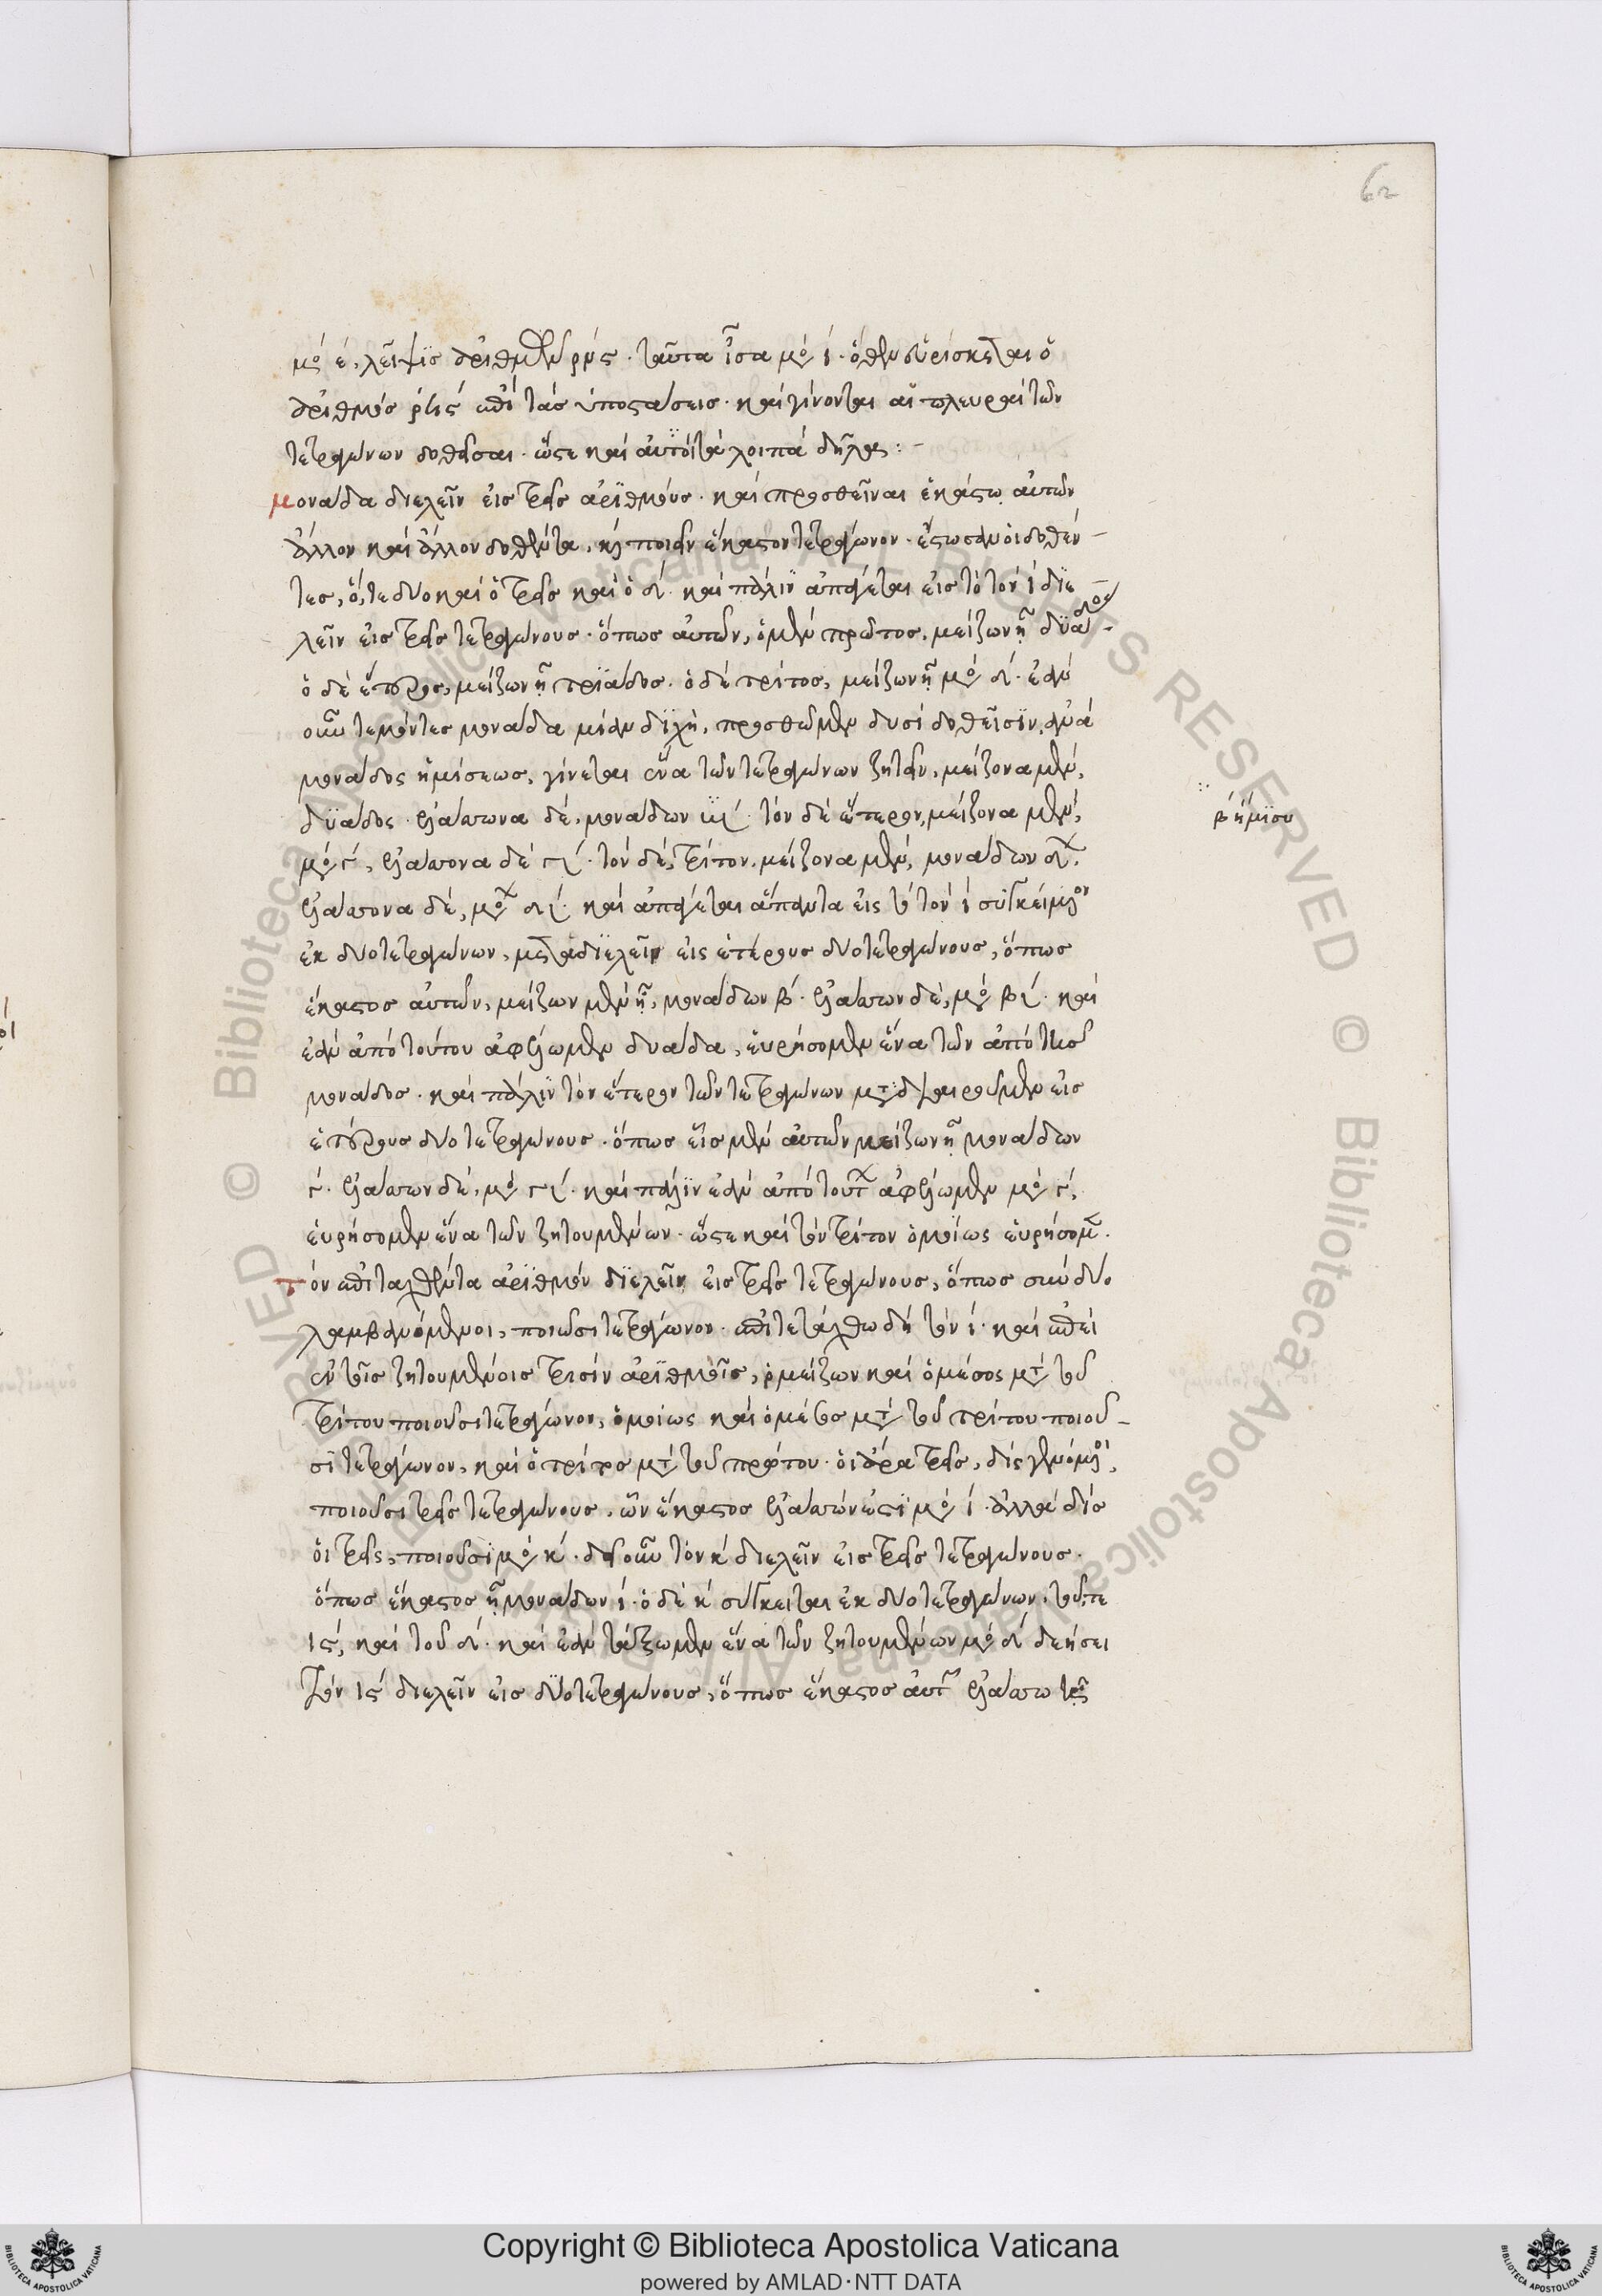 62
μο ε λεῖψις ἀριθμῶν ρμς. ταῦτα ἴσα μο ι. ὅθεν εὑρίσκεται ὁ
ἀριθμὸς ἐπὶ τὰς ὑποστάσεις. καὶ γίνονται αἱ πλευραὶ τῶν
τετραγώνων δοθεῖσαι. ὥστε καὶ αὐτοὶ τὰ λοιπὰ δῆλα:-
μονάδα διελεῖν εἰς τρεῖς ἀριθμούς. καὶ προσθεῖναι ἑκάστῳ αὐτῶν
ἄλλον καὶ ἄλλον δοθέντα, καὶ ποιεῖν ἕκαστον τετράγωνον. ἔστωσαν οἱ δοθέν-
τες, ὅ, τε δύο καὶ ὁ τρεῖς καὶ ὁ δ. καὶ πάλιν ἀπάγεται εἰς τὸ τὸν ι διε-
λεῖν εἰς τρεῖς τετραγώνους. ὅπως αὐτῶν, ὁ μὲν πρῶτος, μείζων ᾖ δυάδος-
ὁ δὲ ἕτερος, μείζων ᾖ τριάδος. ὁ δὲ τρίτος, μείζων ᾖ μο δ. ἐὰν
οὖν τεμόντες μονάδα μίαν δίχη, προσθῶμεν δυσὶ δοθεῖσιν, ἀνὰ
μονάδος ἡμίσεως, γίνεται ἕνα τῶν τετραγώνων ζητεῖν, μείζονα μὲν,
δυάδος. ἐλάττονα δὲ, μονάδων. τὸν δὲ ἕτερον, μείζονα μὲν,
β ἥμισυ
μο γ, ἐλάττονα δὲ γ 𐅵. τὸν δὲ, τρίτον, μείζονα μὲν, μονάδων δ.
ἐλάττονα δὲ, μο δ 𐅵. καὶ ἀπάγεται ἅπαντα εἰς τὸ τὸν ι συγκείμενον
ἐκ δύο τετραγώνων, μεταδιελεῖν εἰς ἑτέρους δύο τετραγώνους, ὅπως
ἕκαστος αὐτῶν, μείζων μὲν ᾖ, μονάδων β. ἐλάττων δὲ, μο β 𐅵. καὶ
ἐὰν ἀπὸ τούτου ἀφέλωμεν δυάδα, εὑρήσομεν ἕνα τῶν ἀπὸ τῆς
μονάδος. καὶ πάλιν τὸν ἕτερον τῶν τετραγώνων μεταδιαιροῦμεν εἰς
ἑτέρους δύο τετραγώνους. ὅπως εἷς μὲν αὐτῶν μείζων ᾖ μονάδων
γ. ἐλάττων δὲ, μο γ 𐅵. καὶ πάλιν ἐὰν ἀπὸ τούτου ἀφέλωμεν μο γ,
εὑρήσομεν ἕνα τῶν ζητουμένων. ὥστε καὶ τὸν τρίτον ὁμοίως εὑρήσομεν.
τὸν ἐπιταχθέντα ἀριθμὸν διελεῖν εἰς τρεῖς τετραγώνους, ὅπως σὺν δύο
λαμβανόμενοι, ποιῶσι τετράγωνον. ἐπιτετάχθω δὴ τὸν ι. καὶ ἐπεὶ
ἐν τοῖς ζητουμένοις τρισὶν ἀριθμοῖς, ὁ μείζων καὶ ὁ μέσος μετὰ τοῦ
τρίτου ποιοῦσι τετράγωνον, ὁμοίως καὶ ὁ μέσος μετὰ τοῦ τρίτου ποιοῦ-
σι τετράγωνον, καὶ ὁ τρίτος μετὰ τοῦ πρώτου. οἱ ἄρα τρεῖς, δὶς γενόμενοι,
ποιοῦσι τρεῖς τετραγώνους, ὧν ἕκαστος ἐλάττων ἐστὶ μο ι. ἀλλὰ δὶς
οἱ τρεῖς, ποιοῦσι μο κ. δεῖ οὖν τὸν κ διελεῖν εἰς τρεῖς τετραγώνους.
ὅπως ἕκαστος ᾖ μονάδων ι. ὁ δὲ κ σύγκειται ἐκ δύο τετραγώνων, τοῦ, τε
ις, καὶ τοῦ δ. καὶ ἐὰν τάξωμεν ἕνα τῶν ζητουμένων μο δ δεήσει
τὸν ις διελεῖν εἰς δύο τετραγώνους, ὅπως ἕκαστος αὐτῶν ἐλάττω
Copyright © Biblioteca Apostolica Vaticana
powered by AMLAD·NTT DATA